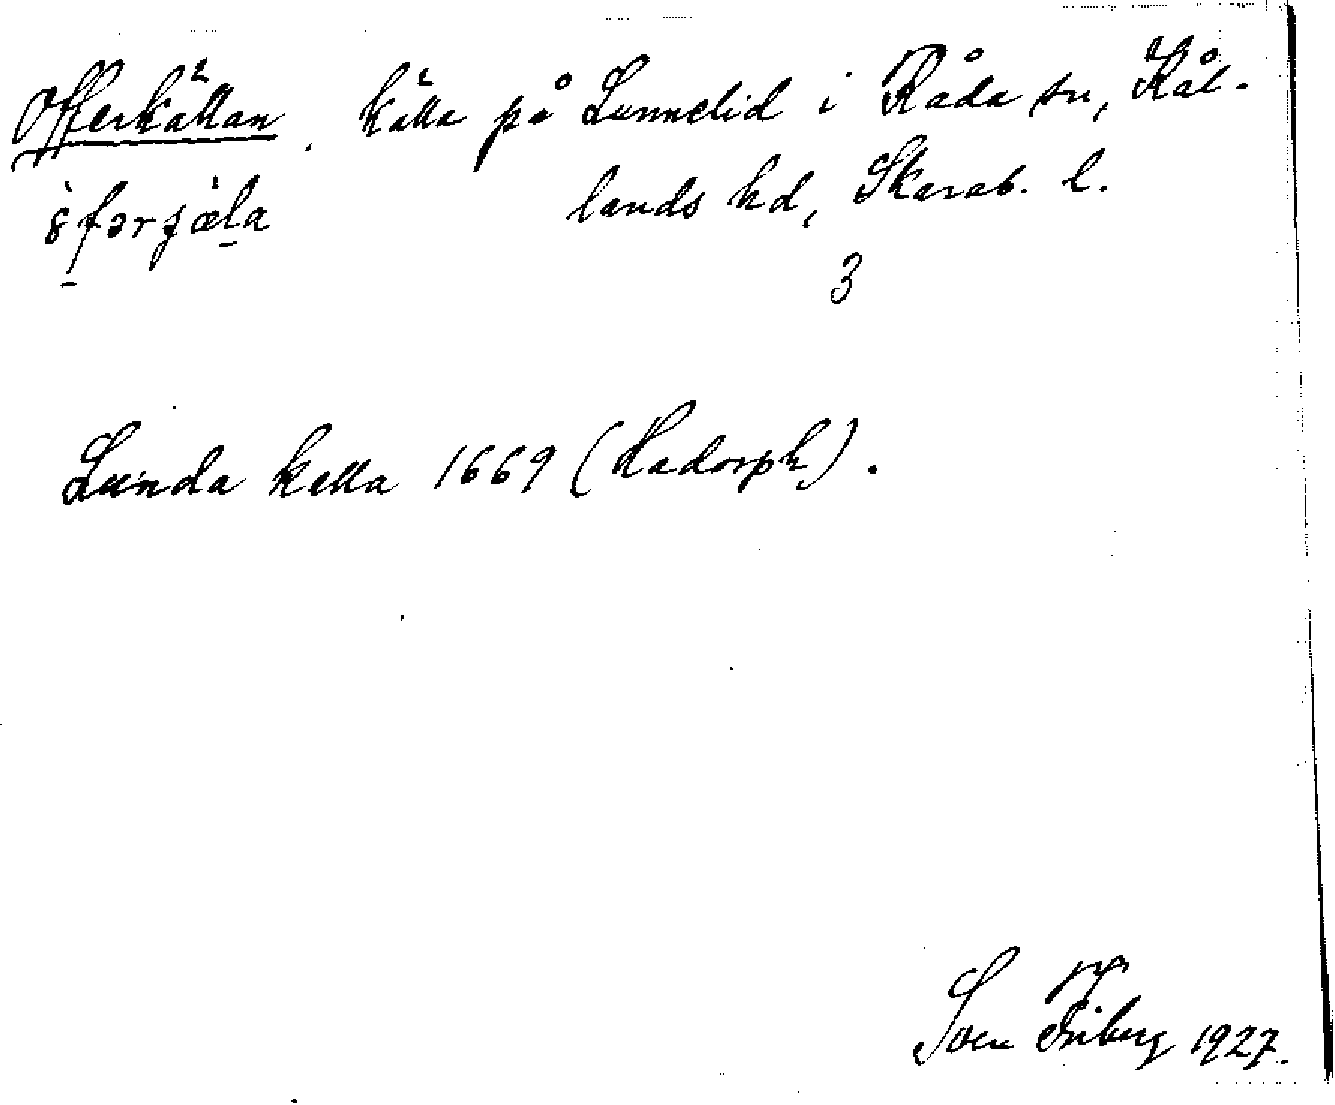 Offerkällan, källa på Lunnelid i Råda sn, Kål-
lands hd, Skarab. l.
3
Lunda kella 1669 (Hadorph).
Sven Friberg 1927.